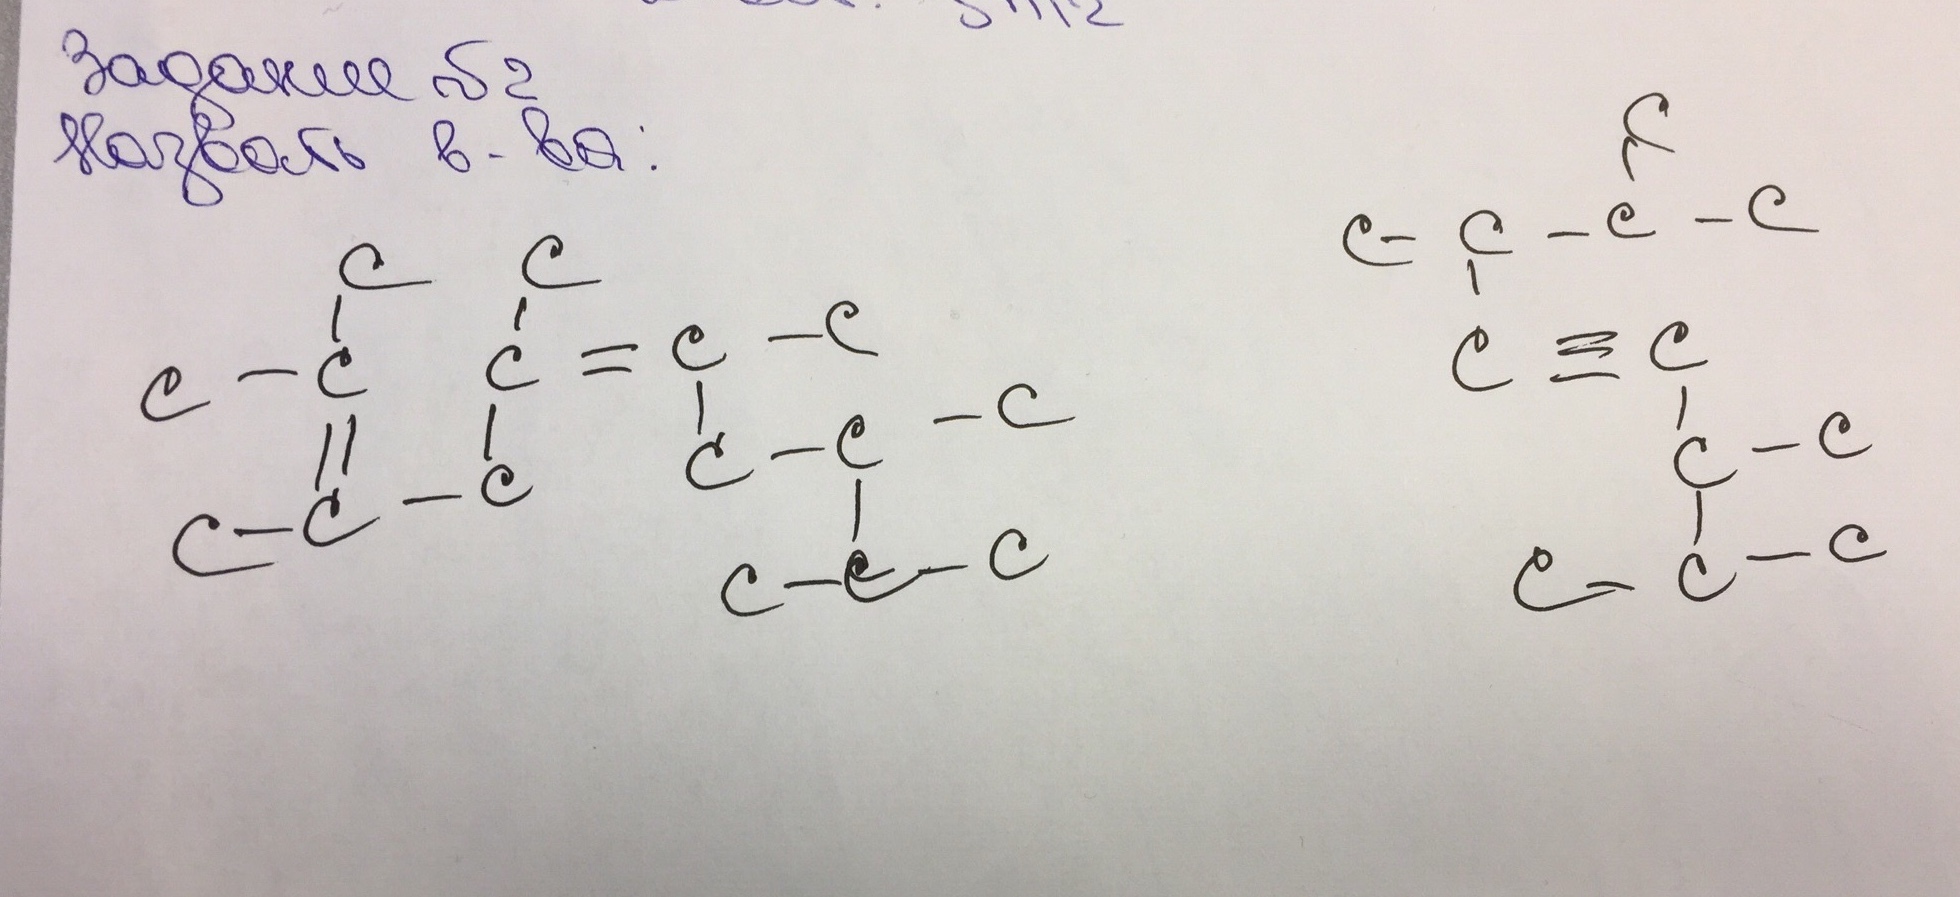 Задание №2
Назвать в-ва:
C C
C - C C = C - C
C - C - C C - C - C
C - C - C
C
C - C - C - C
C ≡ C
C - C
C - C - C